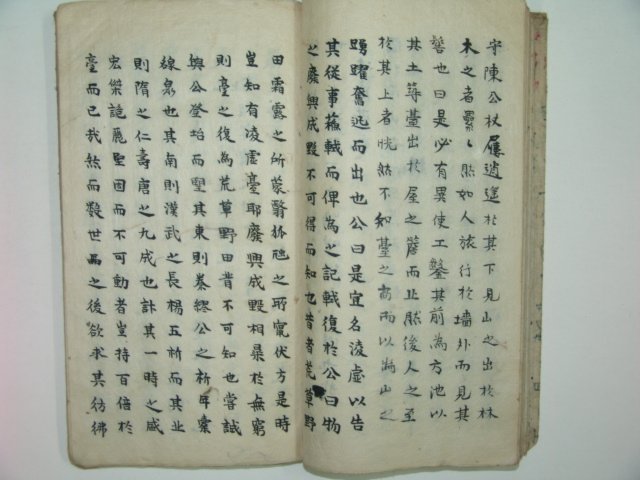 守陳公杖屨逍遙於其下見山之出於林
木之者纍〻然如人旅行於墻外而見其
髻也曰是必有異使工鑿其前為方池以
其土築臺出於屋之簷而止然後人之至
於其上者恍然不知臺之高而以為山之
踴躍奮迅而出也公曰是宜名凌虛以告
其從事蘇軾而俾為之記軾復於公曰物
之廢興成毀不可得而知也昔者荒草野
田霜露之所蒙翳狐虺之所竄伏方是時
豈知有凌虛臺耶廢興成毀相尋於無窮
則臺之復為荒草野田昔不可知也嘗試
與公登臺而望其東則秦穆公之祈年橐
泉也其南則漢武之長楊五柞而其北
則隋之仁壽唐之九成也計其一時之盛
宏傑詭麗堅固而不可動者豈特百倍於
臺而已哉然而數世之後欲求其彷彿